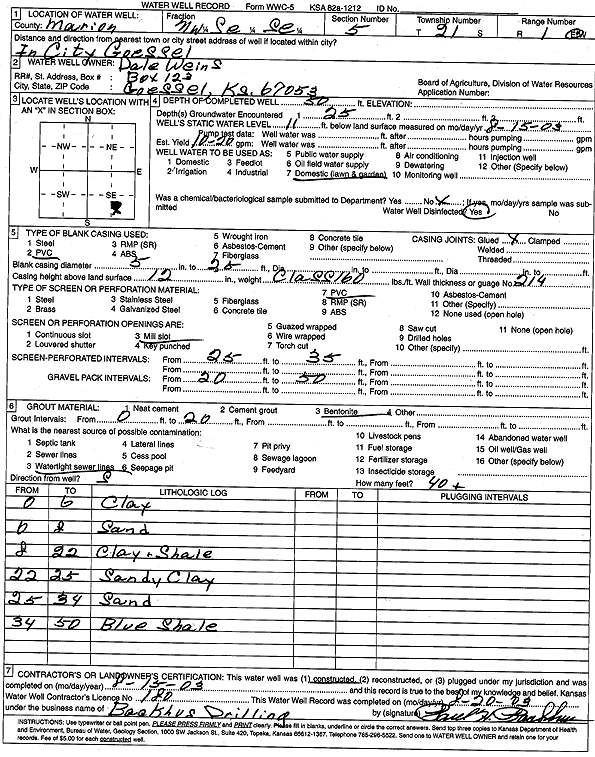 WATER WELL RECORD Form WWC-5 KSA 82a-1212 ID No.
1 LOCATION OF WATER WELL: Fraction Section Number Township Number Range Number
County: Marion NW 1/4 Se 1/4 Se 1/4 5 T 21 S R 1 E/W
Distance and direction from nearest town or city street address of well if located within city?
In City Goessel
2 WATER WELL OWNER: Dale Weins
RR#, St. Address, Box #: Box 123 Board of Agriculture, Division of Water Resources
City, State, ZIP Code : Goessel, Ks. 67053 Application Number:
3 LOCATE WELL'S LOCATION WITH AN "X" IN SECTION BOX:
N
NW NE
W E
SW SE
X
S
4 DEPTH OF COMPLETED WELL 50 ft. ELEVATION:
Depth(s) Groundwater Encountered 1 25 ft. 2 ft. 3 ft.
WELL'S STATIC WATER LEVEL 11 ft. below land surface measured on mo/day/yr 8-15-03
Pump test data: Well water was ft. after hours pumping gpm
Est. Yield 10-20 gpm: Well water was ft. after hours pumping gpm
WELL WATER TO BE USED AS: 5 Public water supply 8 Air conditioning 11 Injection well
1 Domestic 3 Feedlot 6 Oil field water supply 9 Dewatering 12 Other (Specify below)
2 Irrigation 4 Industrial 7 Domestic (lawn & garden) 10 Monitoring well
Was a chemical/bacteriological sample submitted to Department? Yes No X ; If yes, mo/day/yrs sample was sub-
mitted Water Well Disinfected? Yes No
5 TYPE OF BLANK CASING USED: 5 Wrought iron 8 Concrete tile CASING JOINTS: Glued X Clamped
1 Steel 3 RMP (SR) 6 Asbestos-Cement 9 Other (specify below) Welded
2 PVC 4 ABS 7 Fiberglass Threaded
Blank casing diameter 5 in. to 25 ft., Dia in. to ft., Dia in. to ft.
Casing height above land surface 12 in., weight Class 160 lbs./ft. Wall thickness or guage No. 214
TYPE OF SCREEN OR PERFORATION MATERIAL: 7 PVC 10 Asbestos-Cement
1 Steel 3 Stainless Steel 5 Fiberglass 8 RMP (SR) 11 Other (Specify)
2 Brass 4 Galvanized Steel 6 Concrete tile 9 ABS 12 None used (open hole)
SCREEN OR PERFORATION OPENINGS ARE: 5 Guazed wrapped 8 Saw cut 11 None (open hole)
1 Continuous slot 3 Mill slot 6 Wire wrapped 9 Drilled holes
2 Louvered shutter 4 Key punched 7 Torch cut 10 Other (specify) ft.
SCREEN-PERFORATED INTERVALS: From 25 ft. to 35 ft., From ft. to ft.
From ft. to ft., From ft. to ft.
GRAVEL PACK INTERVALS: From 20 ft. to 50 ft., From ft. to ft.
From ft. to ft., From ft. to ft.
6 GROUT MATERIAL: 1 Neat cement 2 Cement grout 3 Bentonite 4 Other
Grout Intervals: From 0 ft. to 20 ft., From ft. to ft., From ft. to ft.
What is the nearest source of possible contamination: 10 Livestock pens 14 Abandoned water well
1 Septic tank 4 Lateral lines 7 Pit privy 11 Fuel storage 15 Oil well/Gas well
2 Sewer lines 5 Cess pool 8 Sewage lagoon 12 Fertilizer storage 16 Other (specify below)
3 Watertight sewer lines 6 Seepage pit 9 Feedyard 13 Insecticide storage
Direction from well? S How many feet? 40+
FROM TO LITHOLOGIC LOG FROM TO PLUGGING INTERVALS
0 6 Clay
6 8 Sand
8 22 Clay + Shale
22 25 Sandy Clay
25 34 Sand
34 50 Blue Shale
7 CONTRACTOR'S OR LANDOWNER'S CERTIFICATION: This water well was (1) constructed, (2) reconstructed, or (3) plugged under my jurisdiction and was
completed on (mo/day/year) 8-15-03 and this record is true to the best of my knowledge and belief. Kansas
Water Well Contractor's Licence No 180 This Water Well Record was completed on (mo/day/yr) 8-20-03
under the business name of Backhus Drilling by (signature)
INSTRUCTIONS: Use typewriter or ball point pen. PLEASE PRESS FIRMLY and PRINT clearly. Please fill in blanks, underline or circle the correct answers. Send top three copies to Kansas Department of Health
and Environment, Bureau of Water, Geology Section, 1000 SW Jackson St., Suite 420, Topeka, Kansas 66612-1367. Telephone 785-296-5522. Send one to WATER WELL OWNER and retain one for your
records. Fee of $5.00 for each constructed well.